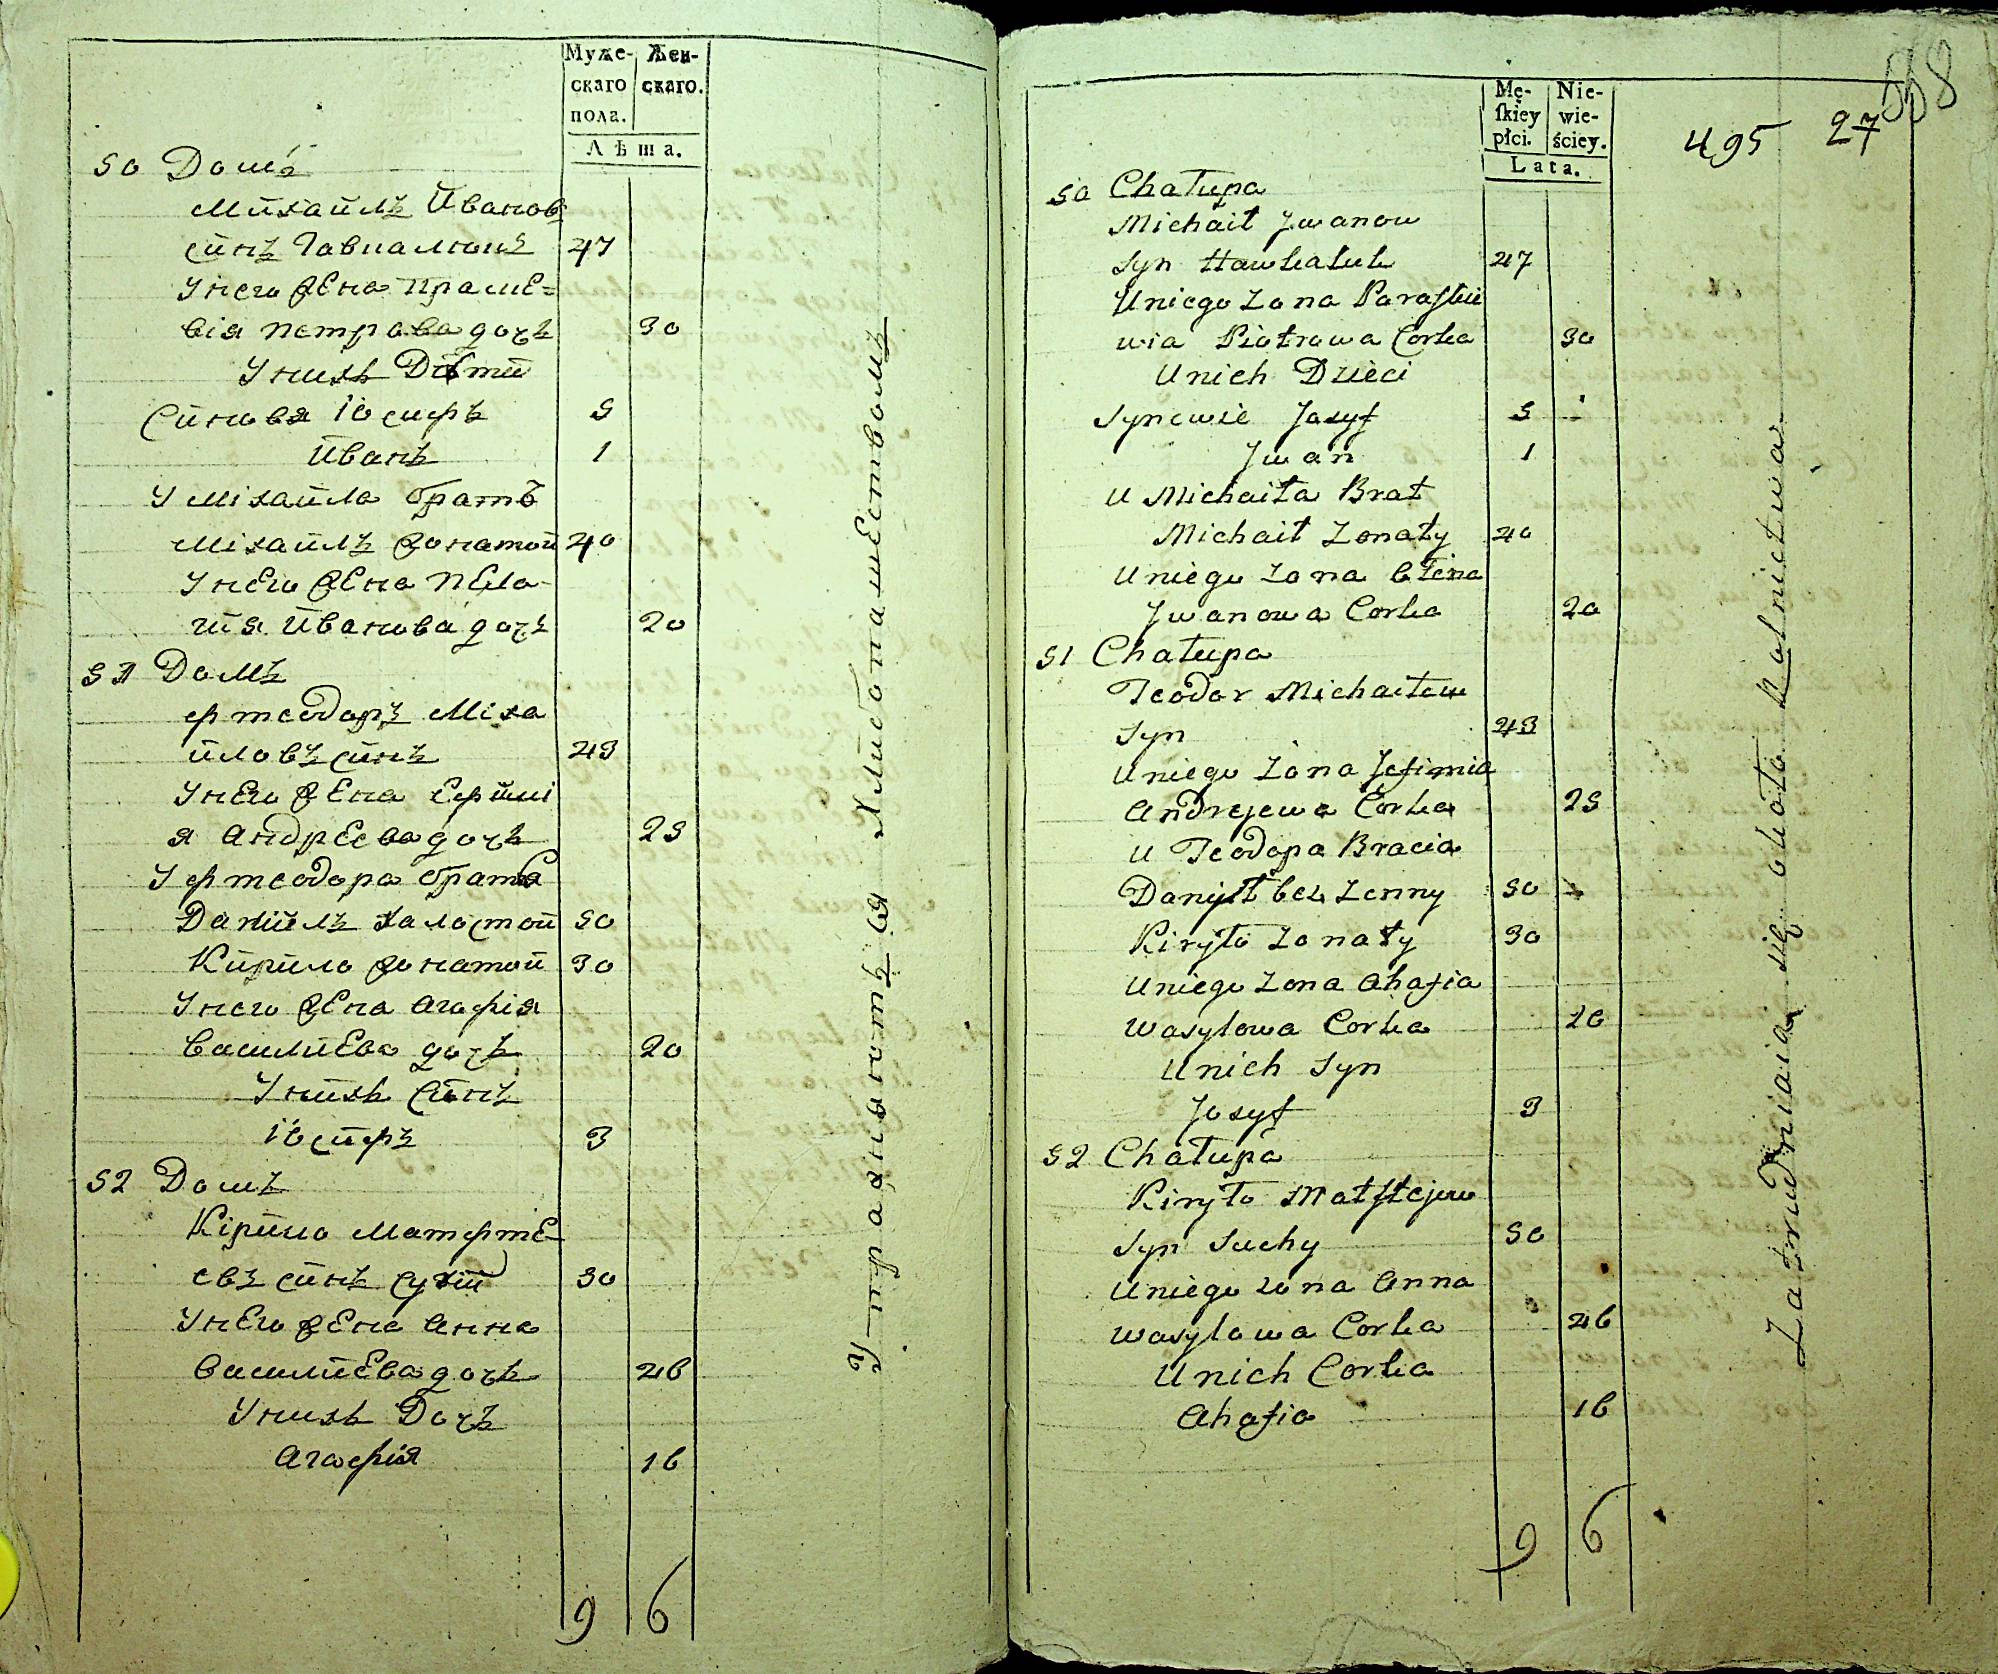 Муже-
скаго
пола.
Жен-
скаго.
Лѣта.
50 Домъ
Михайлъ Иванов
синъ Гавкалюкъ 47
У него жена Праске=
вія Петрова дочь 30
У нихъ Дѣти
Синовя Іосифъ 5
Иванъ 1
У Міхайла братъ
Міхайлъ жонатой 40
У него жена Пела-
гия Иванова дочь 20
51 Домъ
Фтеодоръ Міха
йловъ синъ 43
У него жена Ефимі
я Андреева дочь 25
У Фтеодора братья
Данилъ халостой 50
Кирило жонатой 30
У него жена Агафія
Василиева дочь 20
У нихъ синъ
Іосифъ 3
52 Домъ
Кірило Матфте-
евъ синъ Сухій 50
У него жена Анна
Василиева дочь 46
У нихъ Дочь
Агафія 16
9 6
Упражняютъся хлибопашествомъ
558
Mę-
skiey
płci.
Nie-
wie-
ściey.
Lata.
495 27
50 Chałupa
Michaił Jwanow
syn Hawkaluk 47
U niego Zona Paraskie
wia Piotrowa Corka 30
U nich Dzieci
Synowie Josyf 5
Jwan 1
U Michaiła Brat
Michaił Zonaty 40
U niego Zona Ełena
Jwanowa Corka 20
51 Chałupa
Teodor Michaiłow
Syn 43
U niego Zona Jefimia
Andrejewa Corka 25
U Teodora Bracia
Danyił bez Zonny 50
Kiryło Zonaty 30
U niego Zona Ahafia
Wasylowa Corka 20
U nich Syn
Josyf 3
52 Chałupa
Kiryło Matftejew
Syn Suchy 50
U niego zona Anna
Wasylowa Corka 46
U nich Corka
Ahafia 16
9 6
Zatrudniaia się okoto Rolnictwa